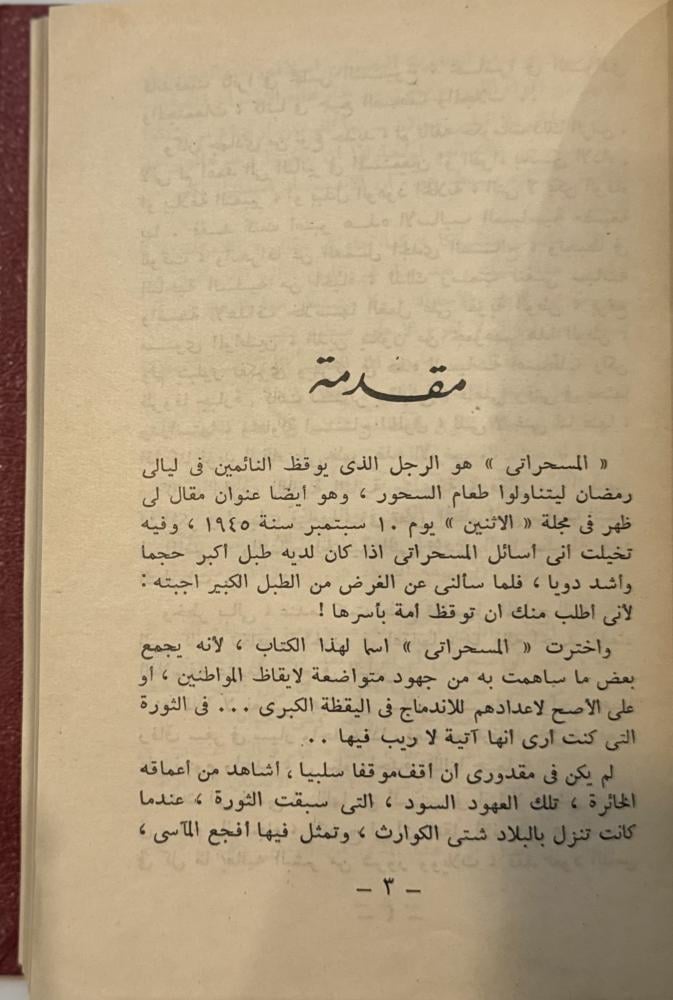 مقدمة
« المسحراتى » هو الرجل الذى يوقظ النائمين فى ليالى
رمضان ليتناولوا طعام السحور ، وهو أيضا عنوان مقال لى
ظهر فى مجلة « الاثنين » يوم ١٠ سبتمبر سنة ١٩٤٥ ، وفيه
تخيلت أنى أسائل المسحراتى اذا كان لديه طبل أكبر حجما
وأشد دويا ، فلما سألنى عن الغرض من الطبل الكبير أجبته :
لأنى أطلب منك أن توقظ أمة بأسرها !
واخترت « المسحراتى » اسما لهذا الكتاب ، لأنه يجمع
بعض ما ساهمت به من جهود متواضعة لايقاظ المواطنين ، أو
على الأصح لاعدادهم للاندماج فى اليقظة الكبرى ... فى الثورة
التى كنت أرى أنها آتية لا ريب فيها ..
لم يكن فى مقدورى أن أقف موقفا سلبيا ، أشاهد من أعماقه
الحائرة ، تلك العهود السود ، التى سبقت الثورة ، عندما
كانت تنزل بالبلاد شتى الكوارث ، وتمثل فيها أفجع المآسى ،
— ٣ —